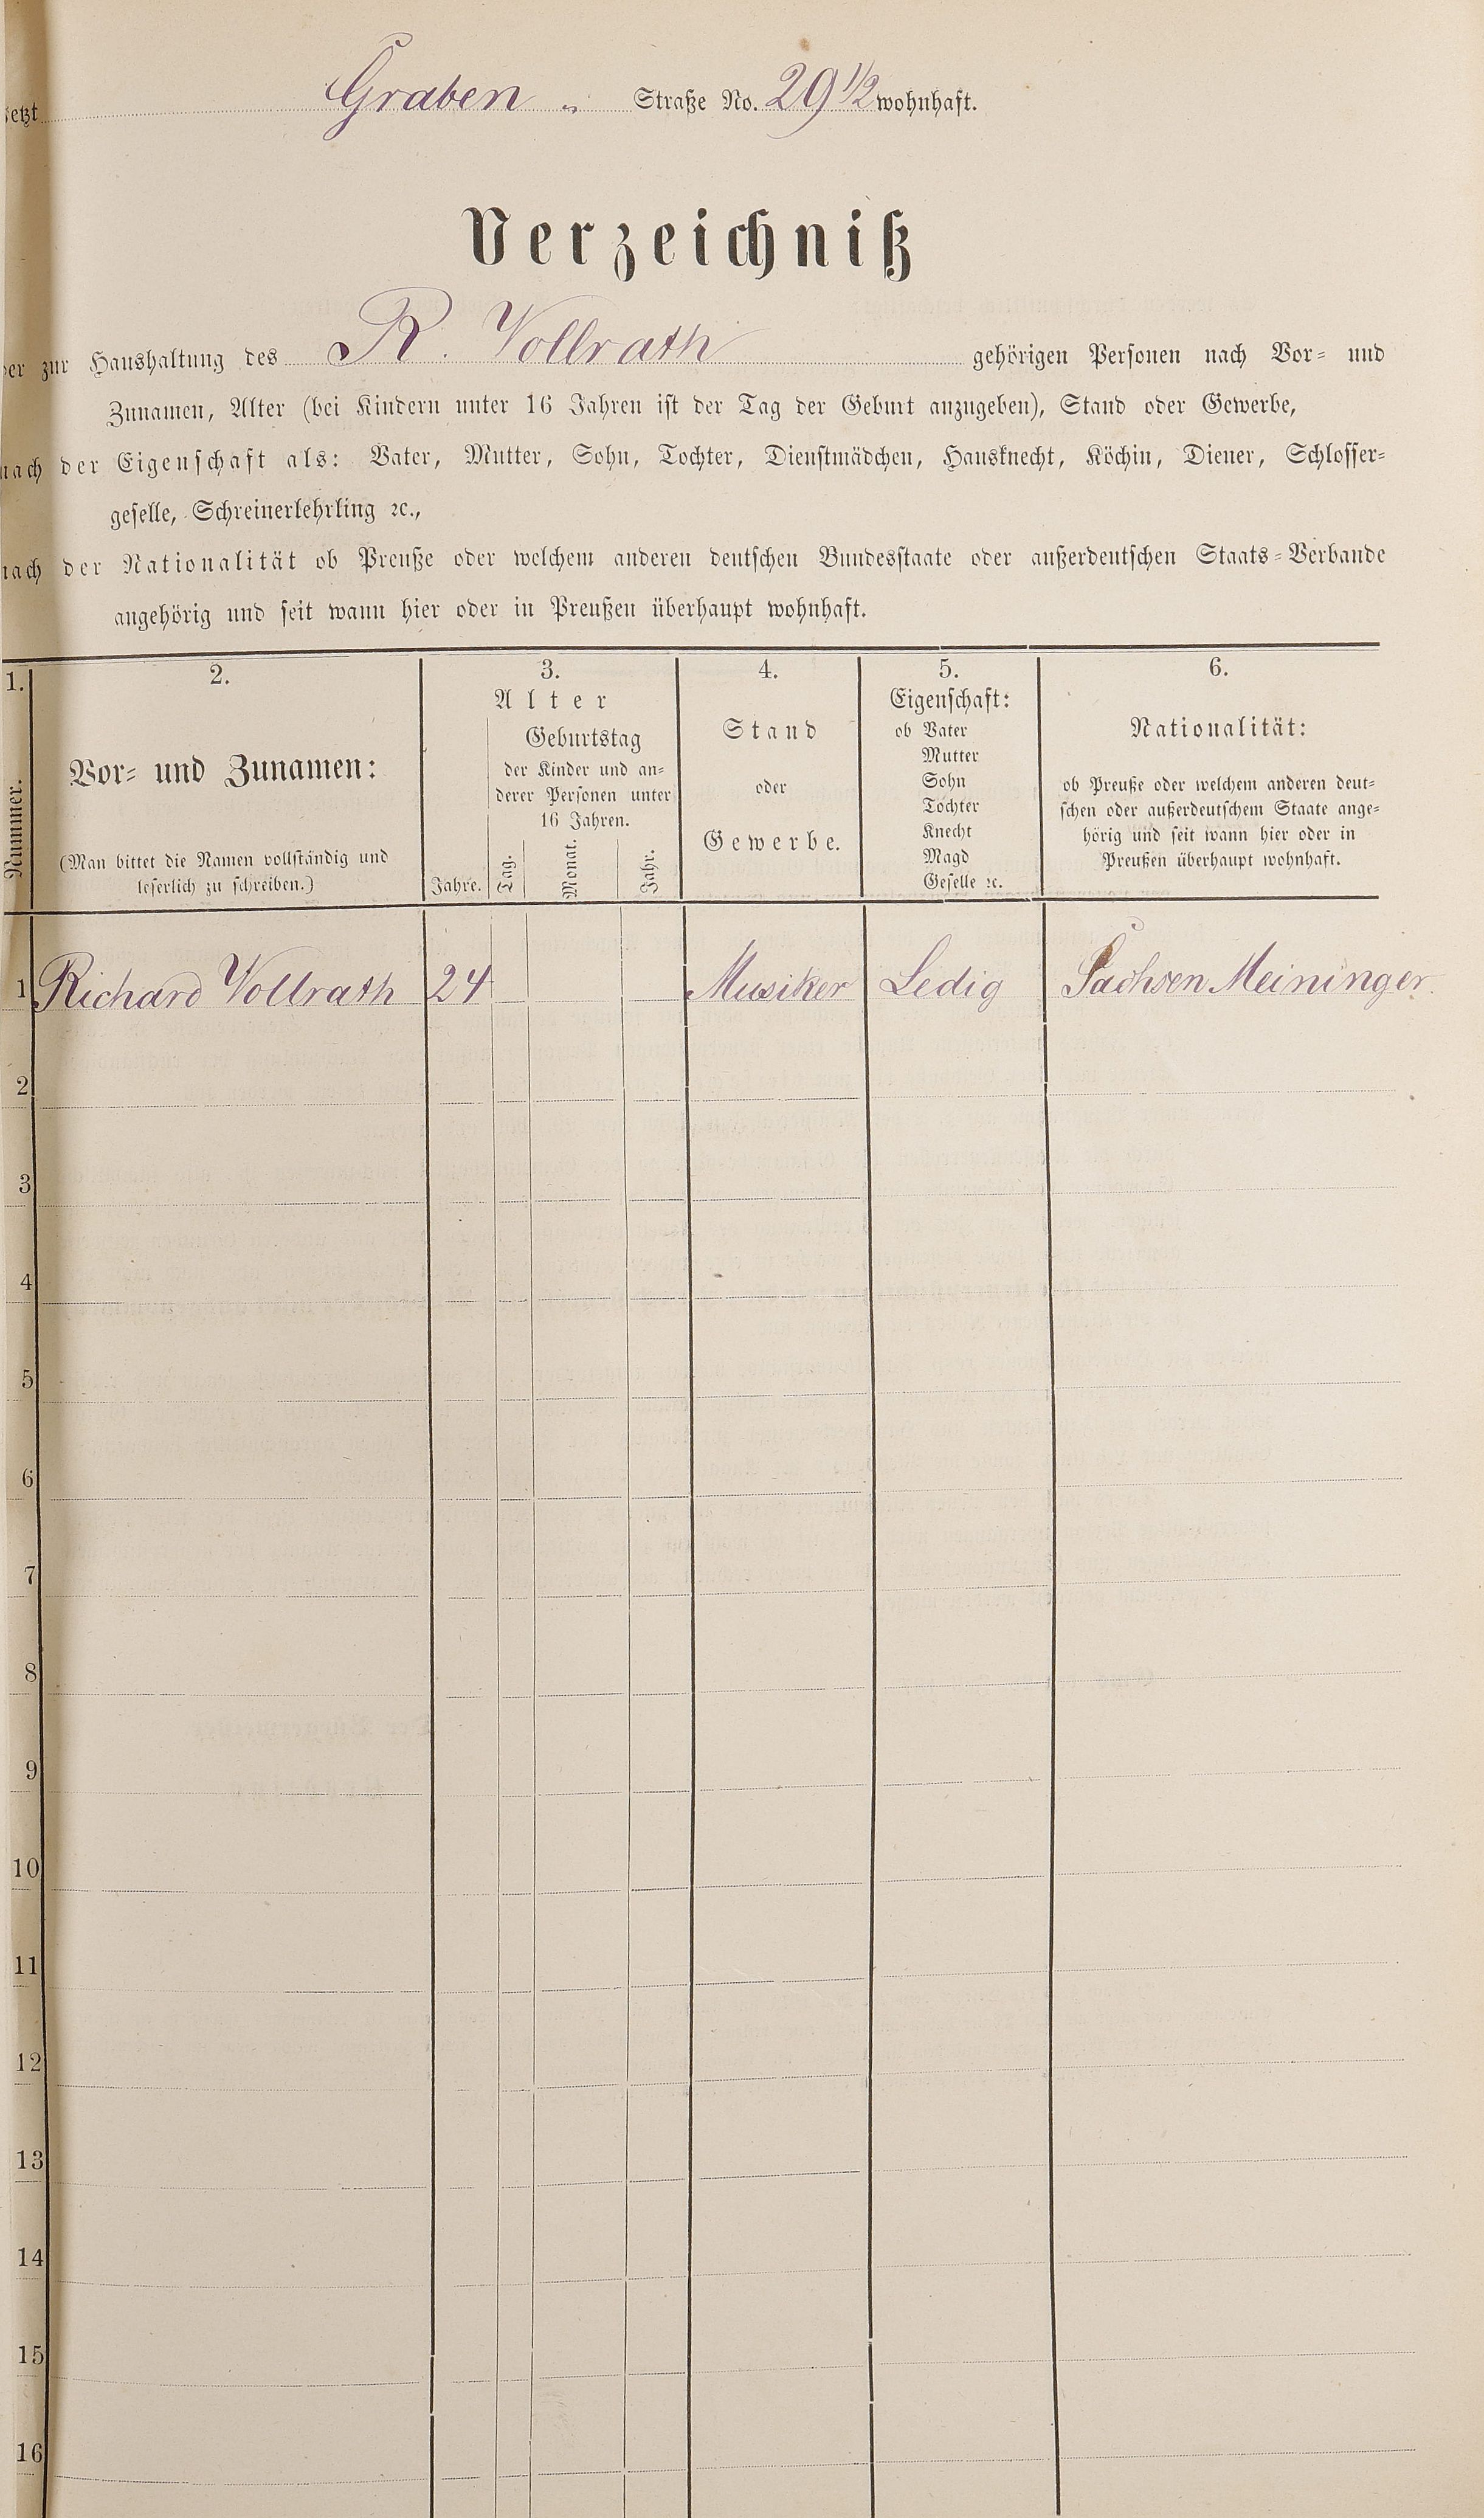 jetzt Graben „ Straße No. 29 1/2 wohnhaft.
Verzeichniß
der zur Haushaltung des R. Vollrath gehörigen Personen nach Vor- und
Zunamen, Alter (bei Kindern unter 16 Jahren ist der Tag der Geburt anzugeben), Stand oder Gewerbe,
nach der Eigenschaft als: Vater, Mutter, Sohn, Tochter, Dienstmädchen, Hausknecht, Köchin, Diener, Schlosser-
geselle, Schreinerlehrling ꝛc.,
nach der Nationalität ob Preuße oder welchem anderen deutschen Bundesstaate oder außerdeutschen Staats-Verbande
angehörig und seit wann hier oder in Preußen überhaupt wohnhaft.
1.
Nummer.
2.
Vor- und Zunamen:
(Man bittet die Namen vollständig und
leserlich zu schreiben.)
3.
Alter
Geburtstag
der Kinder und an-
derer Personen unter
16 Jahren.
Jahre. Tag. Monat. Jahr.
4.
Stand
oder
Gewerbe.
5.
Eigenschaft:
ob Vater
Mutter
Sohn
Tochter
Knecht
Magd
Geselle ꝛc.
6.
Nationalität:
ob Preuße oder welchem anderen deut-
schen oder außerdeutschem Staate ange-
hörig und seit wann hier oder in
Preußen überhaupt wohnhaft.
1 Richard Vollrath 24 Musiker Ledig Sachsen Meininger.
2
3
4
5
6
7
8
9
10
11
12
13
14
15
16